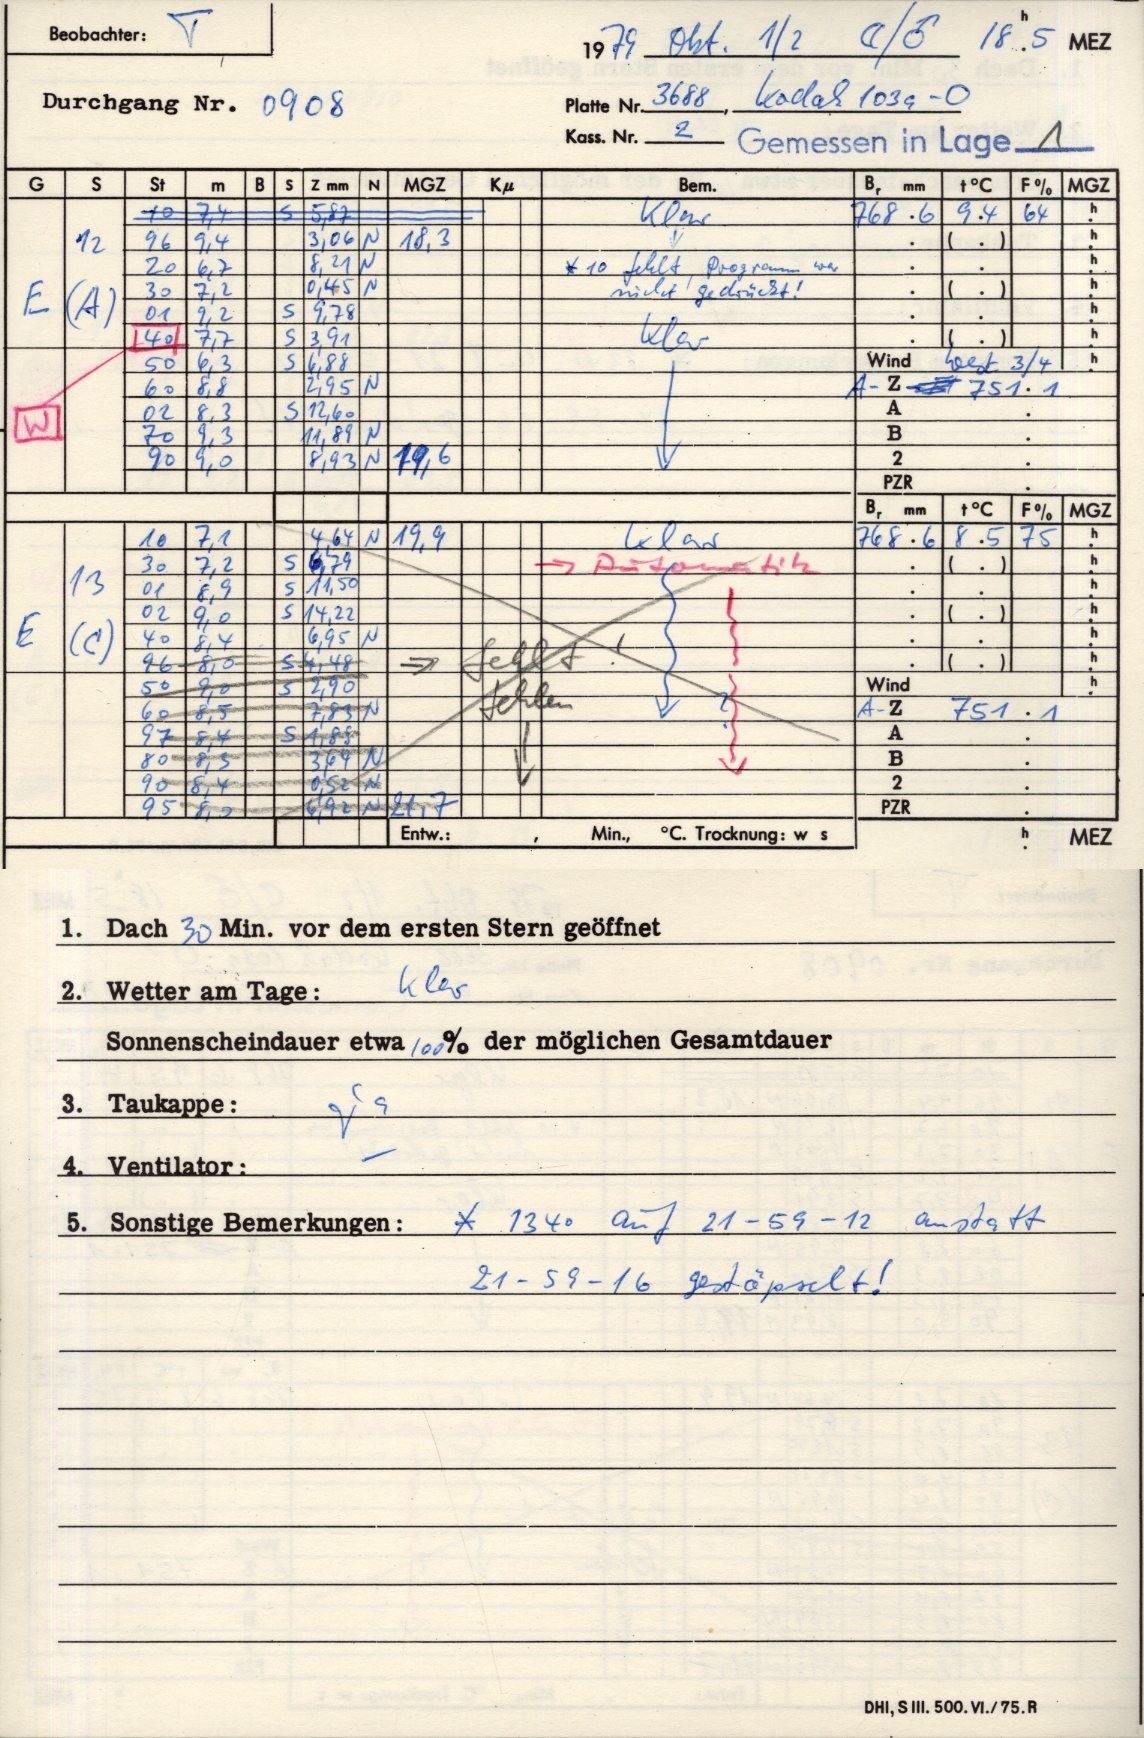 Beobachter: T
1979 Okt. 1/2 ☾/♂ 18.5 h MEZ
Durchgang Nr. 0908
Platte Nr. 3688, Kodak 103a-O
Kass. Nr. 2 Gemessen in Lage 1
G S St m B S Z mm N MGZ Kμ Bem. Br mm t °C F % MGZ
10 7,4 S 5,87 Klar 768.6 9.4 64 h
12 96 9,4 3,06 N 18,3 . ( . ) h
20 6,7 8,21 N * 10 fehlt, Programm war . . h
E (A) 30 7,2 0,45 N nicht gedrückt! . ( . ) h
01 9,2 S 9,78 . . h
40 7,7 S 3,91 Klar . ( . ) h
50 6,3 S 6,88 Wind West 3/4 h
60 8,8 2,95 N A- Z 751.1
W 02 8,3 S 12,60 A
70 9,3 11,89 N B
90 9,0 8,93 N 19,6 2 .
PZR .
Br mm t °C F % MGZ
10 7,1 4,64 N 19,9 Klar 768.6 8.5 75 h
30 7,2 S 6,79 → Automatik . ( . ) h
13 01 8,9 S 11,50 . . h
02 9,0 S 14,22 . ( . ) h
E (C) 40 8,4 6,95 N . . h
96 8,0 S 4,48 ⇒ fehlt! . ( . ) h
50 9,0 S 2,90 fehlen Wind h
60 8,5 7,83 N ? A- Z 751.1
97 8,4 S 1,88 A .
80 8,5 3,64 N B .
90 8,4 0,52 N 2 .
95 8,0 6,92 N 21,7 PZR .
Entw.: , Min., °C. Trocknung: w s h. MEZ
1. Dach 30 Min. vor dem ersten Stern geöffnet
2. Wetter am Tage: Klar
Sonnenscheindauer etwa 100% der möglichen Gesamtdauer
3. Taukappe: ja
4. Ventilator: –
5. Sonstige Bemerkungen: * 1340 auf 21-59-12 anstatt
21-59-16 gestöpselt!
DHI, S III. 500. VI./75. R